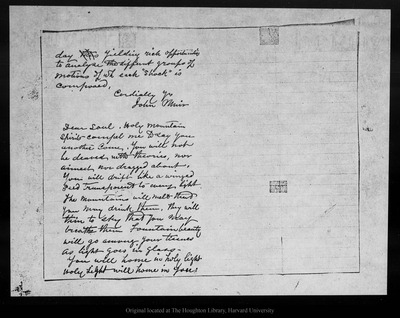 day yielding rich opportunities
to analyze the different groups of
motions of wh each "Shock" is
composed,
Cordially Yrs
John Muir
Dear Soul. Holy mountain
Spirits compel me to say you
another Come. You will not
be dosed with theories, nor
nor dragged about.
You will drift like a winged
seed transparent to every light
The mountains will melt that
you may drink them. They will
thin to sky that you may
breathe them Fountain beauty
will go among your tissues
As light goes in glass.
You will home in holy light
Holy light will home in You
Original located at The Houghton Library, Harvard University